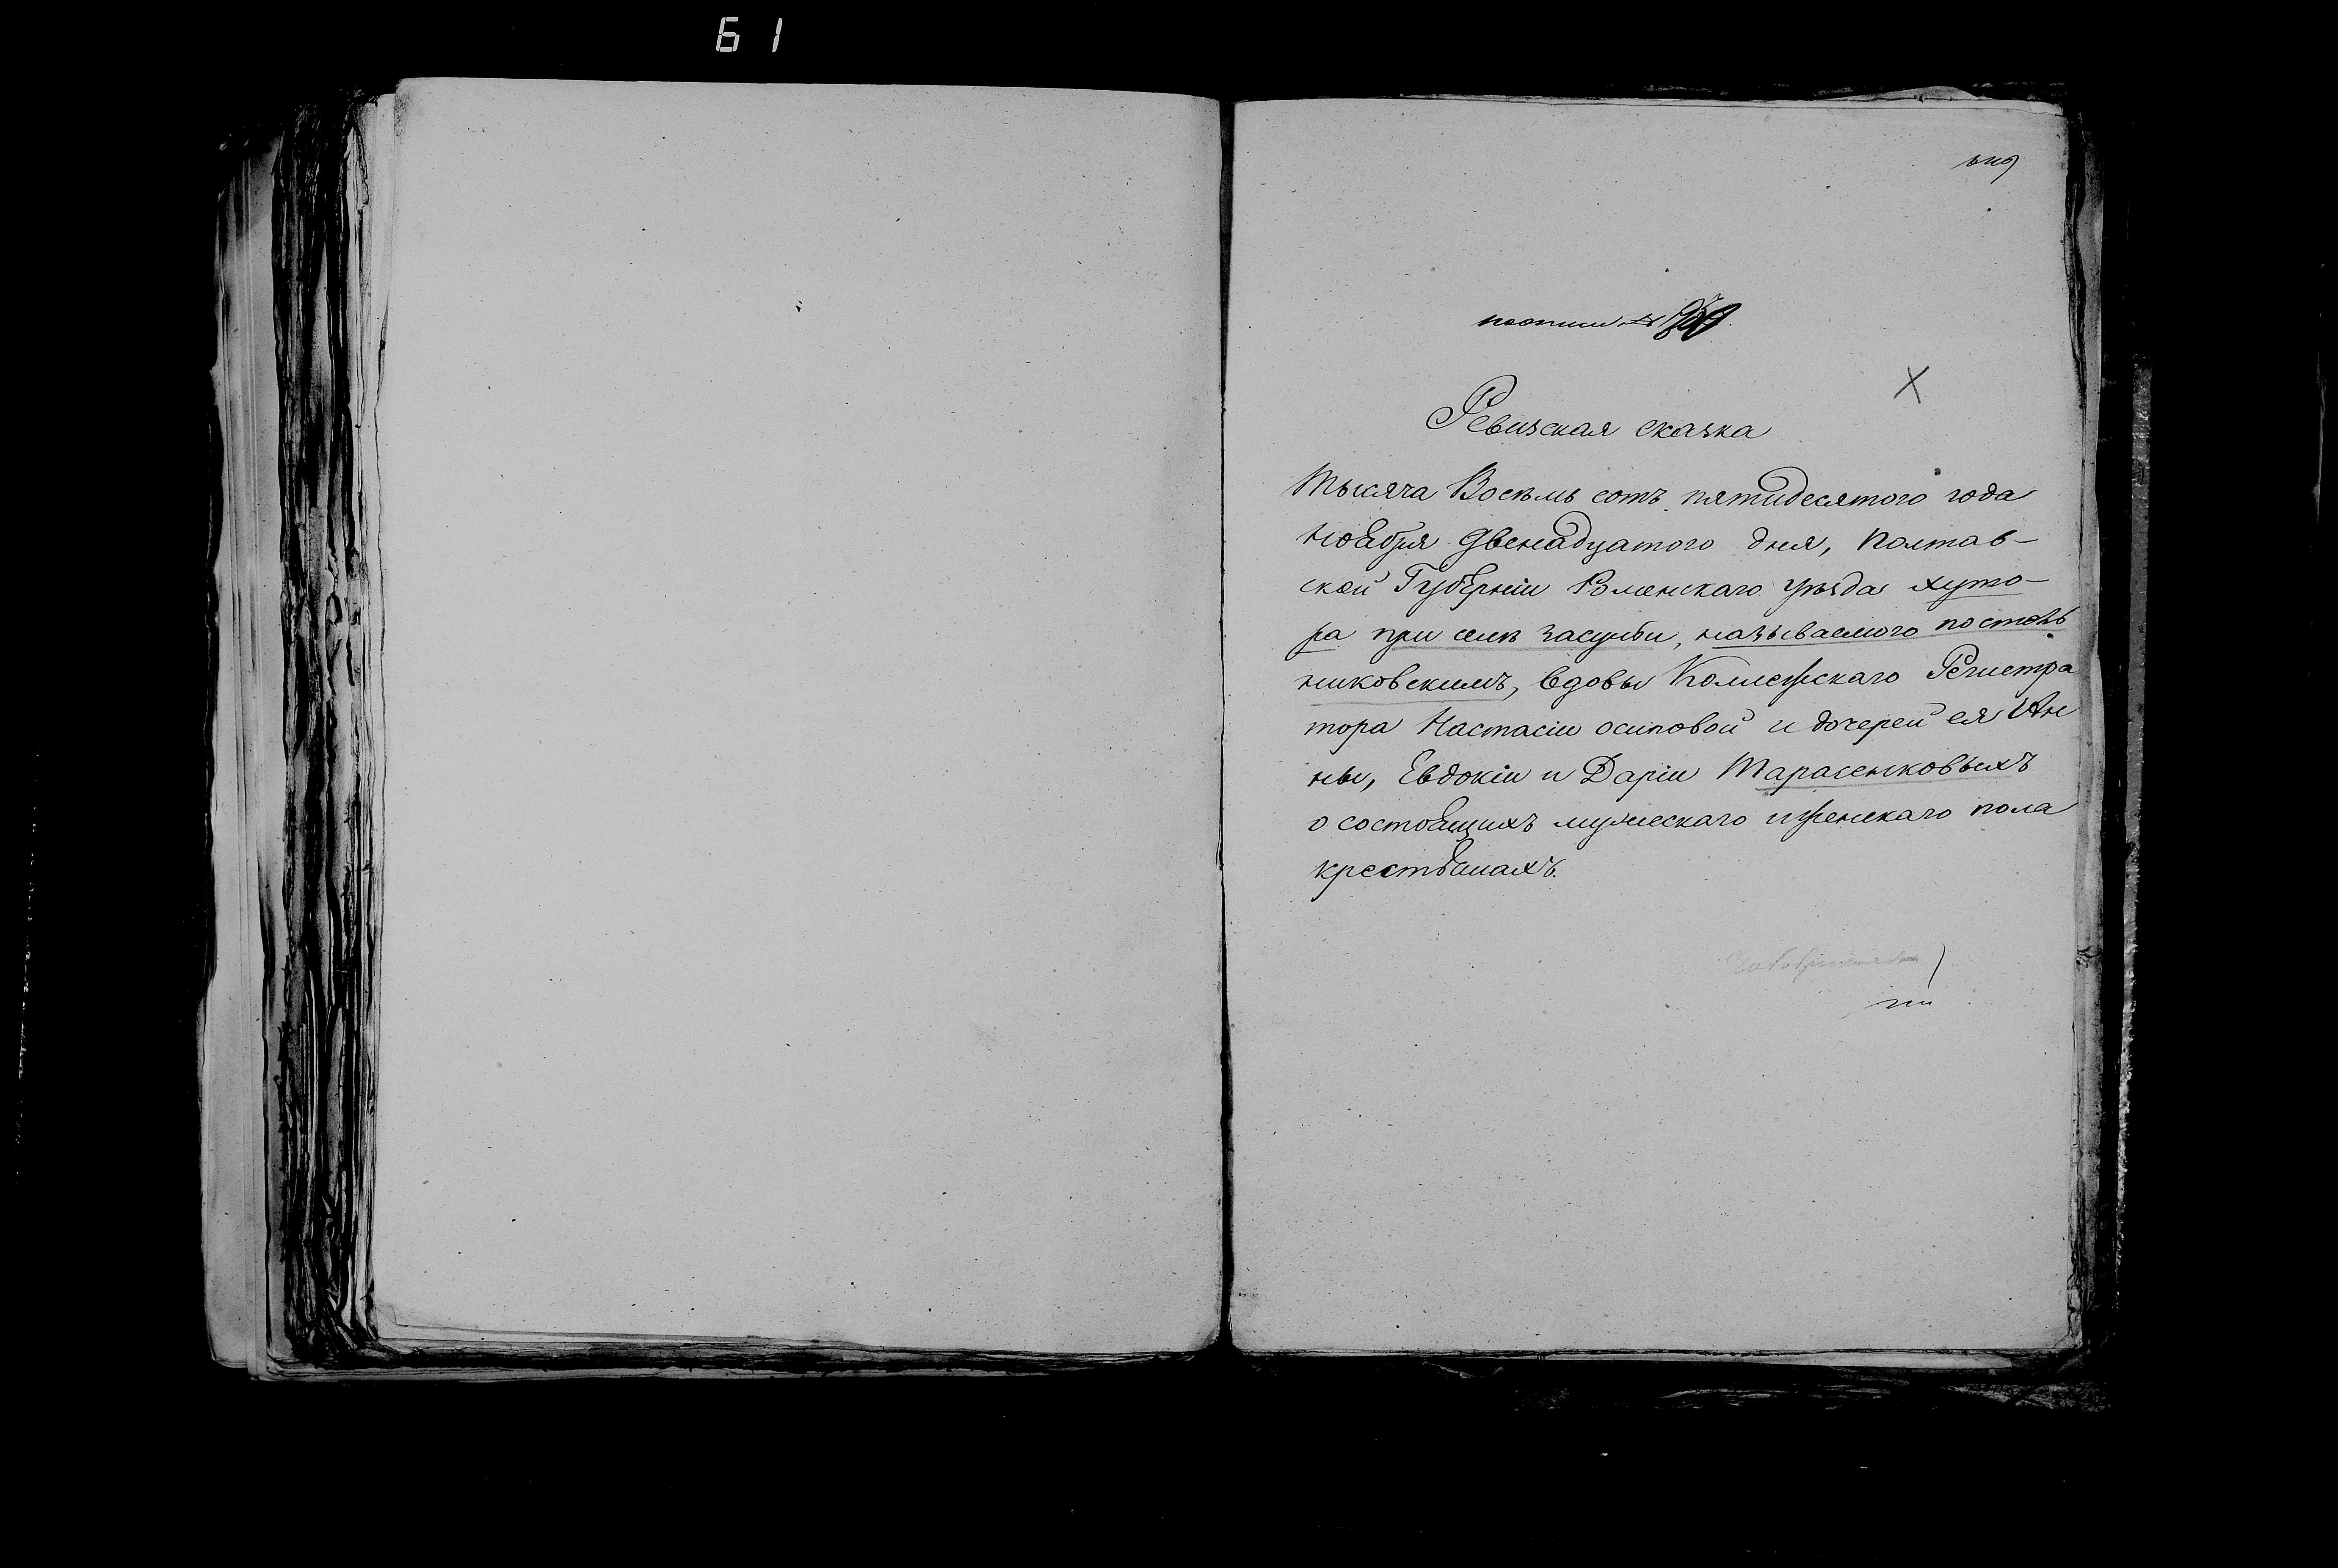 61
поописи №
Ревизская сказка
Тысяча Восемь сотъ пятидесятого года
ноября двенадцатого дня, Полтав-
ской Губерніи Роменскаго уезда хуто-
ра при селе засульи, называемого постов
никовскимъ, вдовы Коллежскаго Регистра
тора Настасіи осиповой и дочерей ея Ан
ны, Евдокіи и Даріи Тарасенковыхъ
о состоящихъ мужескаго и женскаго пола
крестьянахъ.